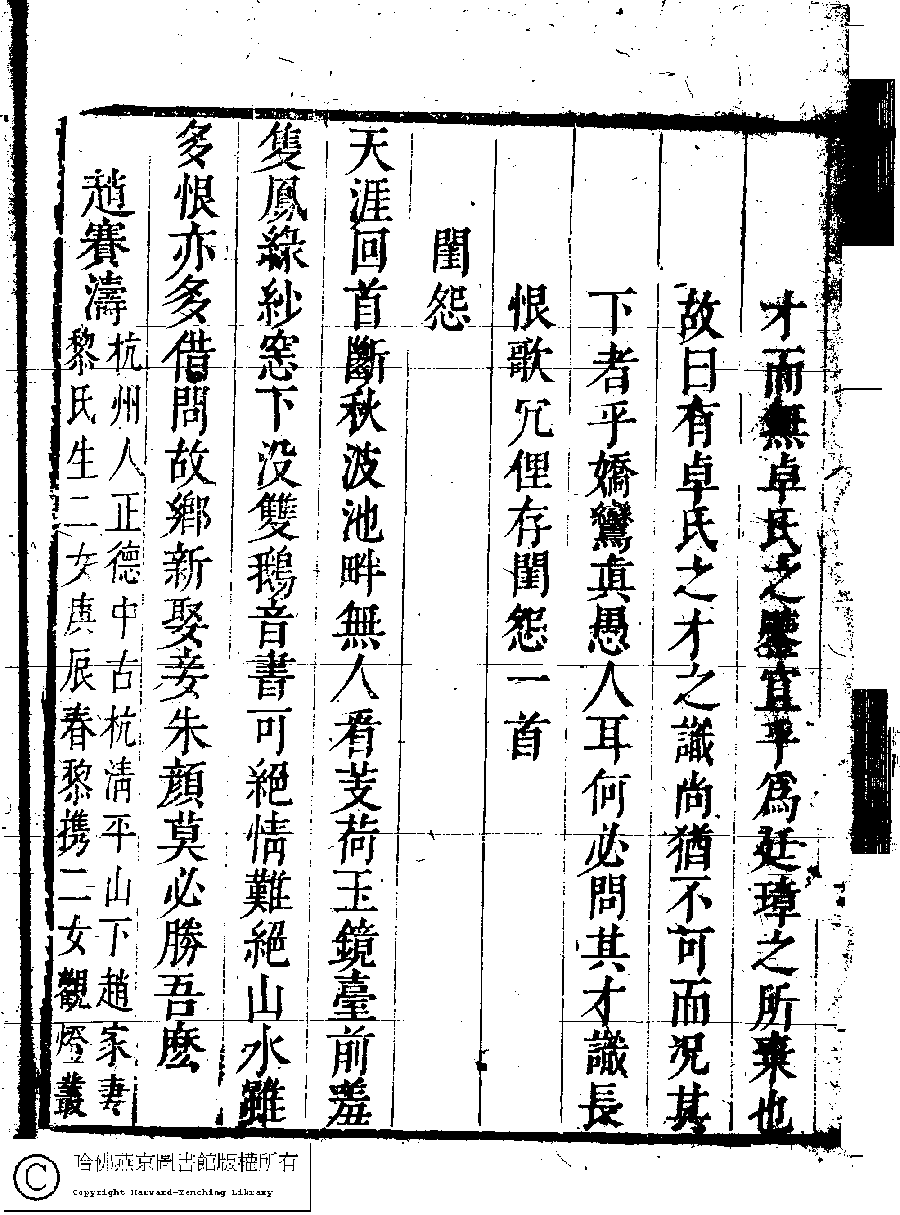 才而無卓氏之鑒宜乎爲廷璋之所棄也
故曰有卓氏之才之識尚猶不可而况其
下者乎嬌鸞真愚人耳何必問其才識長
恨歌冗俚存閨怨一首
閨怨
天涯回首斷秋波池畔無人看芰荷玉鏡臺前羞
隻鳳綠紗窓下没雙鵝音書可絕情難絕山水雖
多恨亦多借問故鄉新娶妾朱顏莫必勝吾麽
趙賽濤
杭州人正德中古杭清平山下趙家妻
黎氏生二女庚辰春黎携二女觀燈叢
哈佛燕京圖書館版權所有
Copyright Harvard-Yenching Library